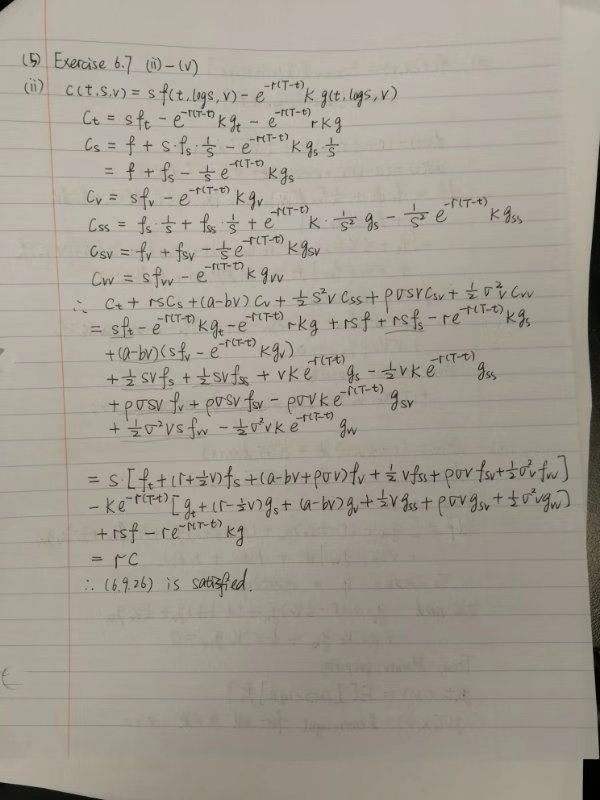 (5) Exercise 6.7 (ii)-(v)
(ii) c(t,s,v) = sf(t,logs,v) - e^{-r(T-t)}Kg(t,logs,v)
C_t = sf_t - e^{-r(T-t)}Kg_t - e^{-r(T-t)}rKg
C_s = f + s·f_s·1/s - e^{-r(T-t)}Kg_s 1/s
= f + f_s - 1/s e^{-r(T-t)}Kg_s
C_v = sf_v - e^{-r(T-t)}Kg_v
C_ss = f_s·1/s + f_ss·1/s + e^{-r(T-t)}K·1/s² g_s - 1/s² e^{-r(T-t)}Kg_ss
C_sv = f_v + f_sv - 1/s e^{-r(T-t)}Kg_sv
C_vv = sf_vv - e^{-r(T-t)}Kg_vv
∴ C_t + rsC_s + (a-bv)C_v + 1/2 s²vC_ss + ρσsvC_sv + 1/2 σ²vC_vv
= sf_t - e^{-r(T-t)}Kg_t - e^{-r(T-t)}rKg + rsf + rsf_s - re^{-r(T-t)}Kg_s
+ (a-bv)(sf_v - e^{-r(T-t)}Kg_v)
+ 1/2 svf_s + 1/2 svf_ss + 1/2 vKe^{-r(T-t)}g_s - 1/2 vKe^{-r(T-t)}g_ss
+ ρσsvf_v + ρσsvf_sv - ρσvKe^{-r(T-t)}g_sv
+ 1/2 σ²vsf_vv - 1/2 σ²vKe^{-r(T-t)}g_vv
= s·[f_t + (r+1/2 v)f_s + (a-bv+ρσv)f_v + 1/2 vf_ss + ρσvf_sv + 1/2 σ²vf_vv]
- Ke^{-r(T-t)}[g_t + (r-1/2 v)g_s + (a-bv)g_v + 1/2 vg_ss + ρσvg_sv + 1/2 σ²vg_vv]
+ rsf - re^{-r(T-t)}Kg
= rC
∴ (6.9.26) is satisfied.